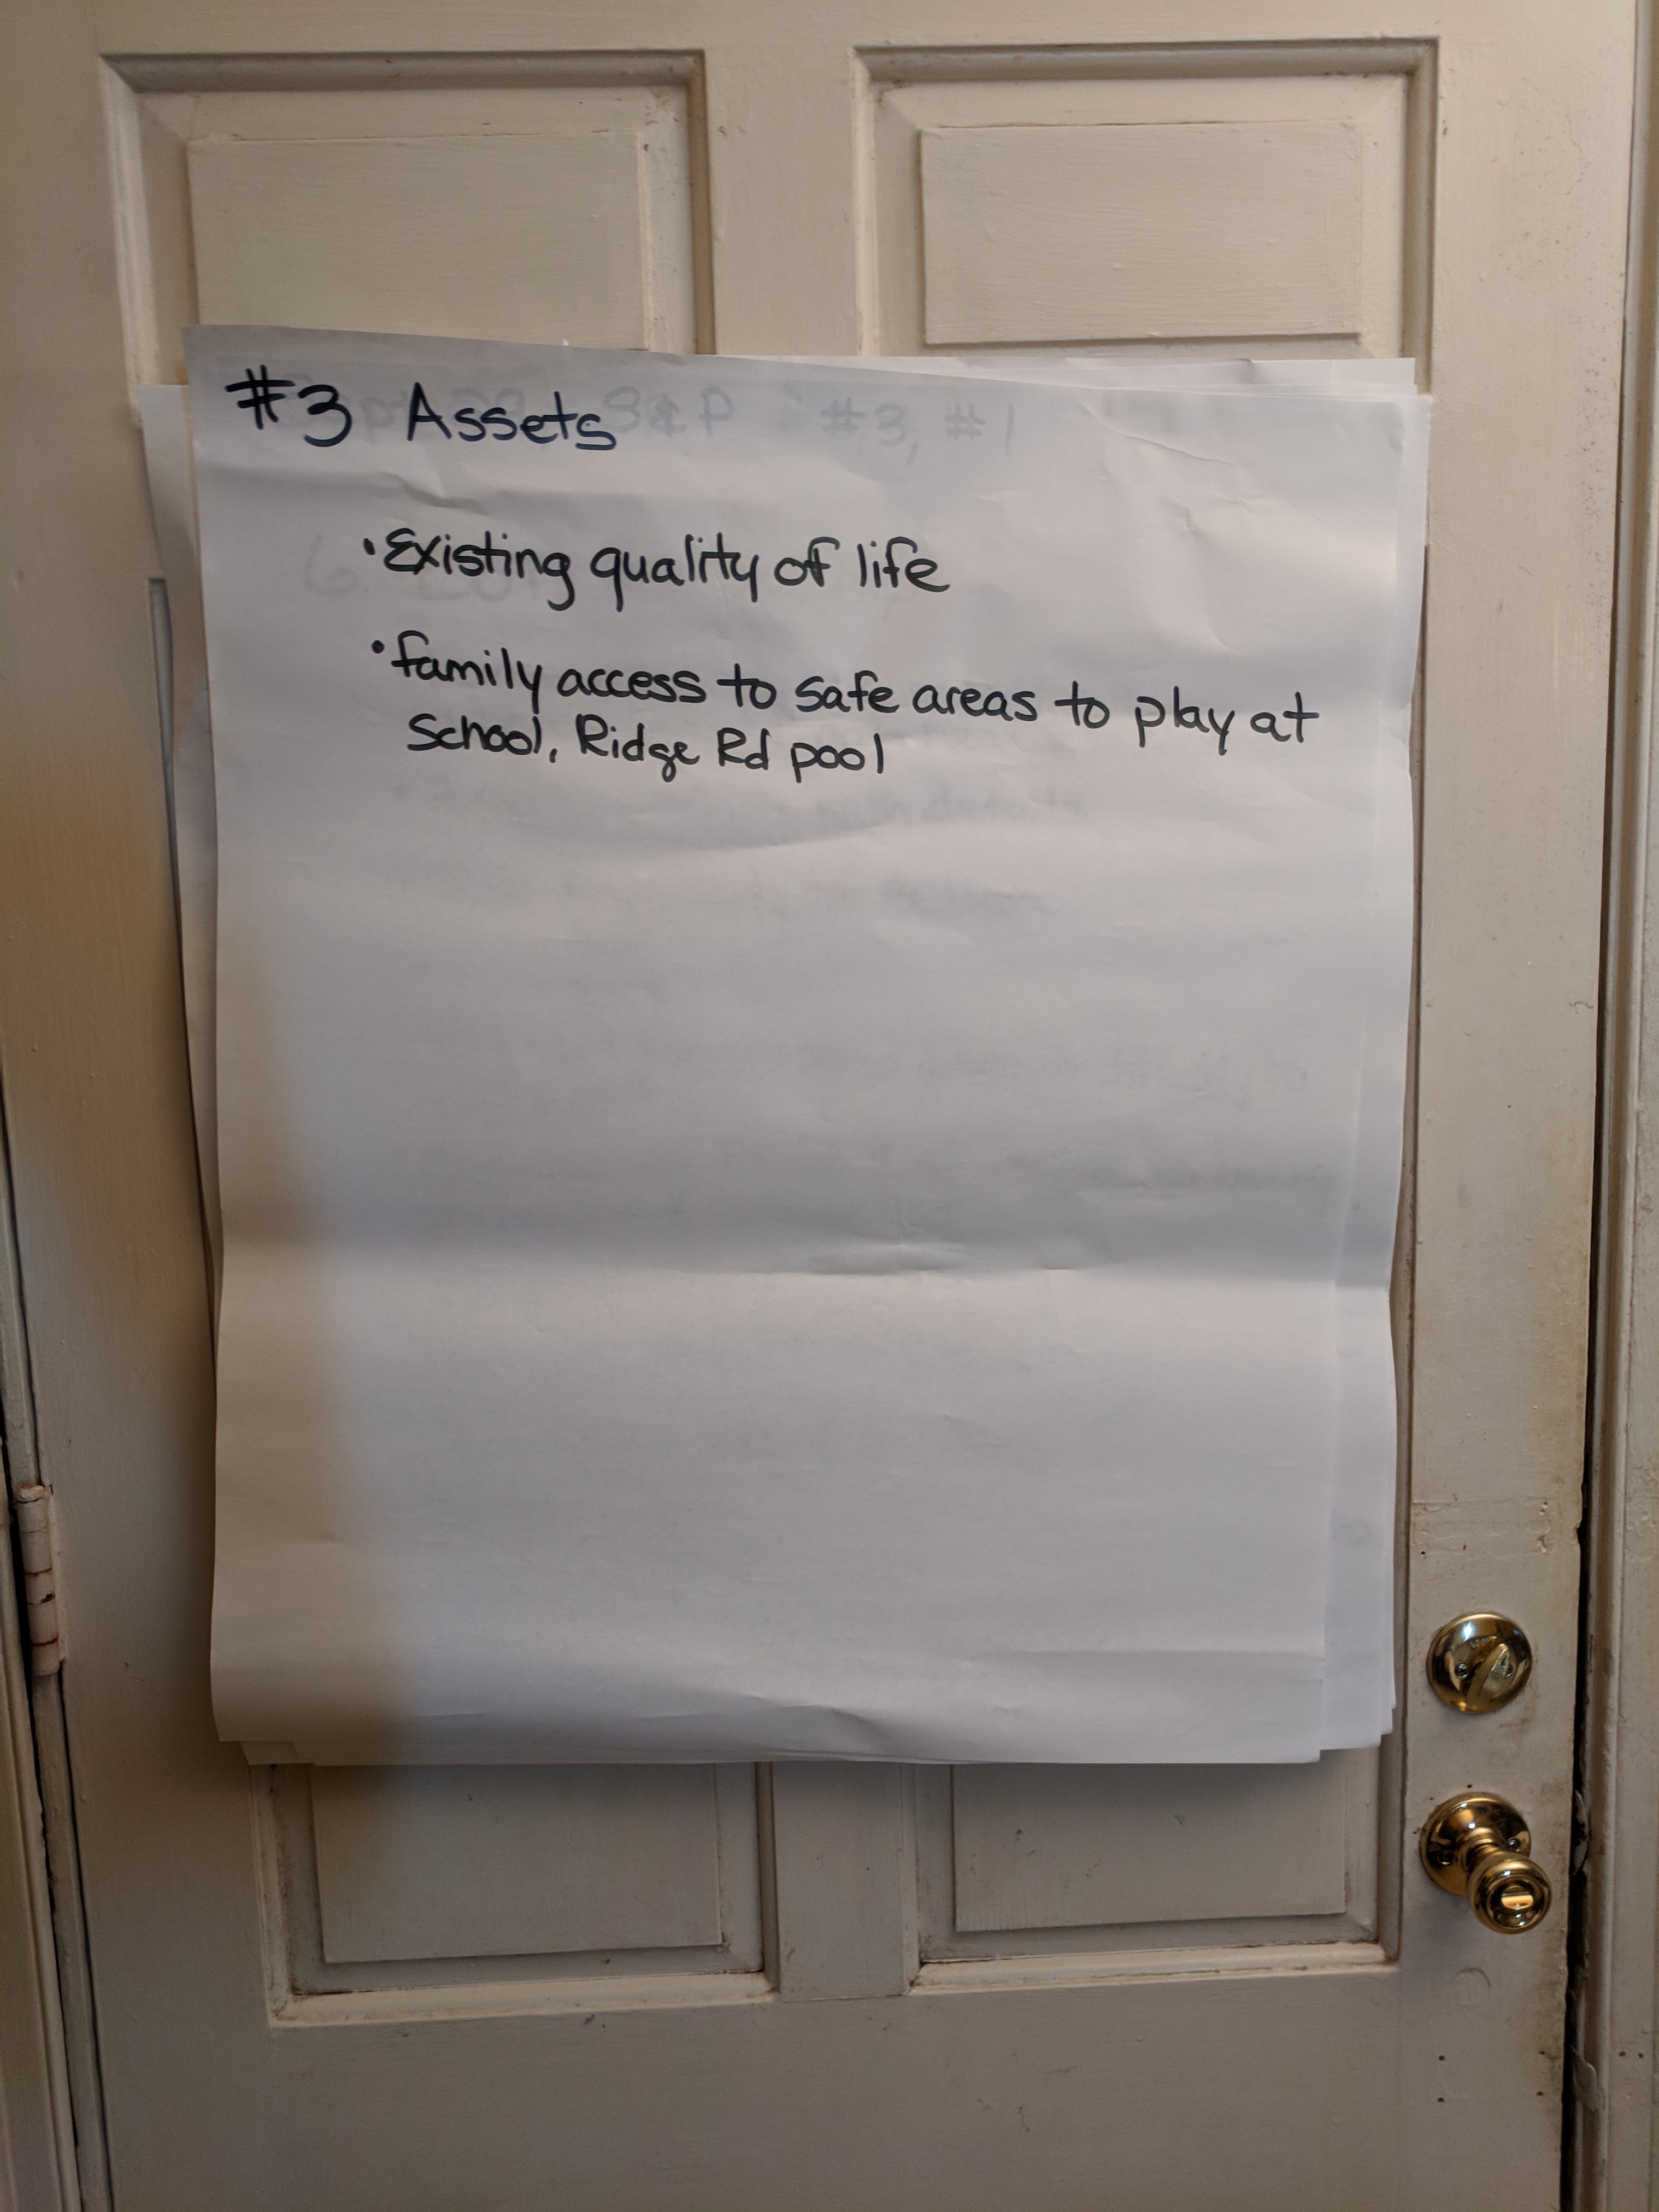 #3 Assets
• Existing quality of life
• family access to safe areas to play at
School, Ridge Rd pool